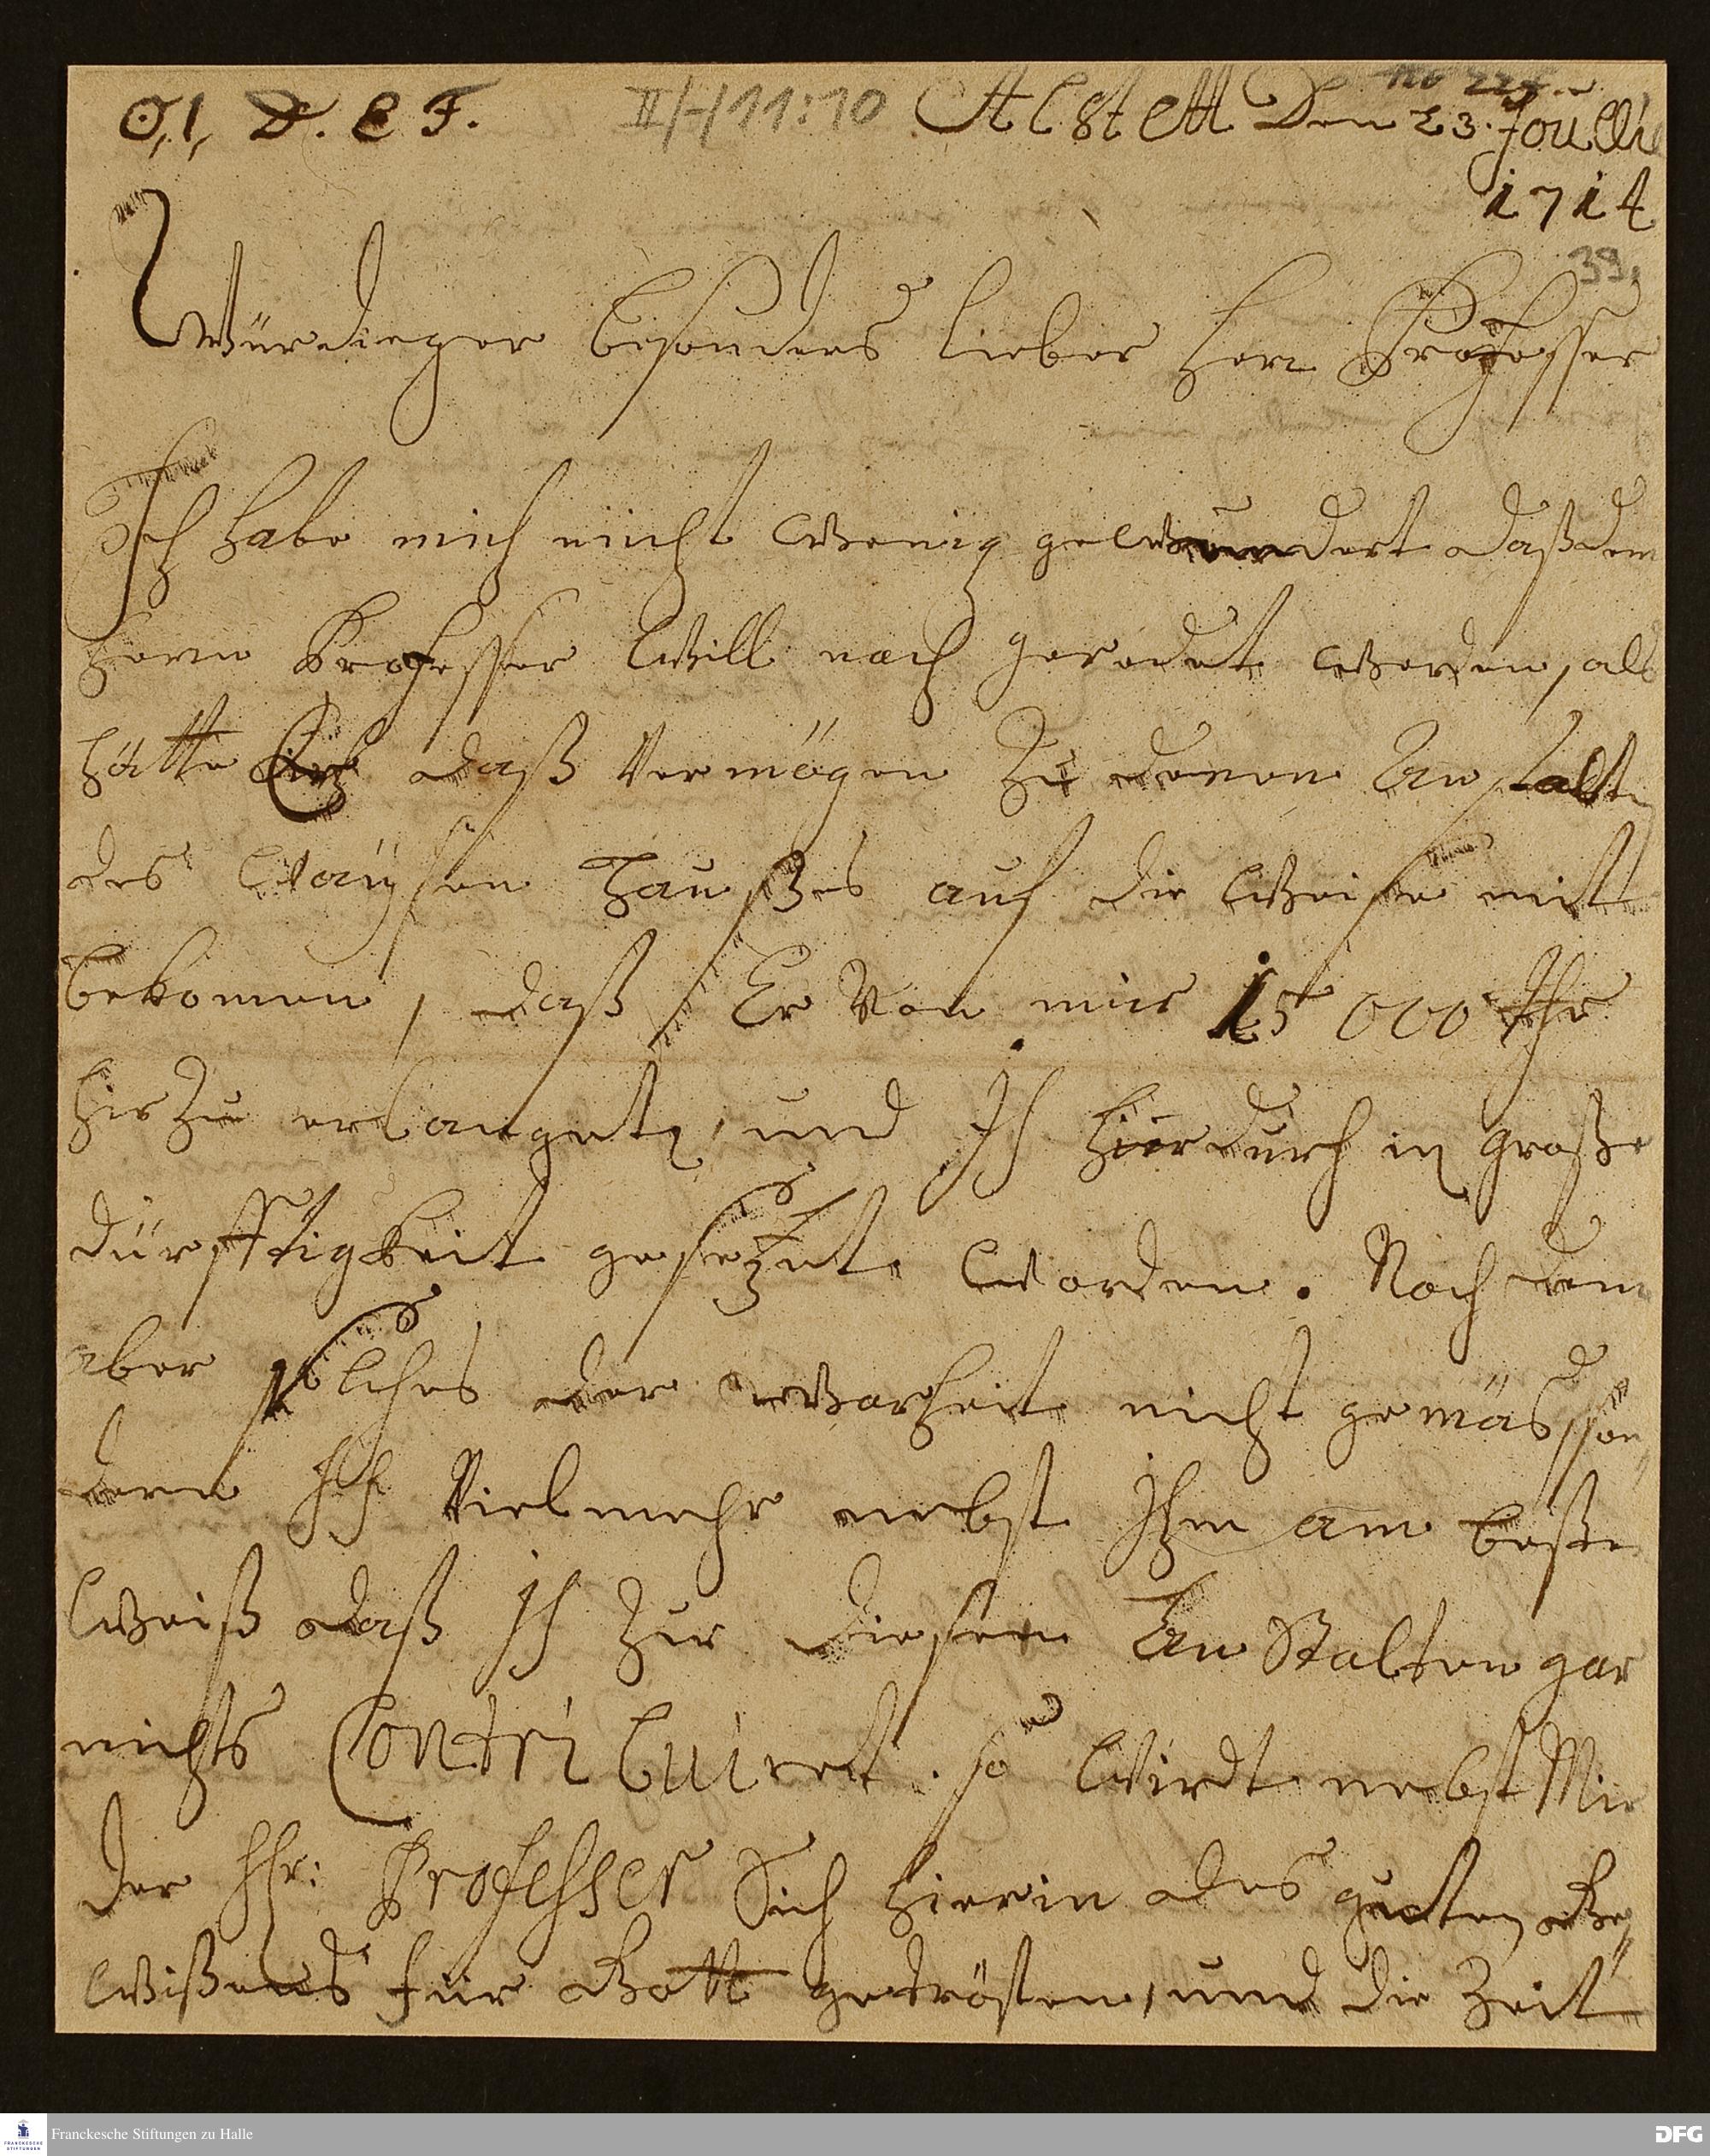 O, I, D. E F. II/-/11:10 Alstett Den 23. Joulli
1714
39,
Würdieger besonders lieber Herr Professer
Ich habe mich nücht wenig gewundert daß dem
Herrn Professer will nach geredet werden, als
hätte Er daß Vermögen zu denen Anstalte
des Waÿsen Haußes auf die Weise mitt
bekomen, daß Er Von mir 15000 Thr
hirzu erlanget, und Ich hierdurch in große
dürfftigkeit gesezet worden. Nach dem
aber solches der warheit nicht gemäs, son„
dern Ich Vielmehr nebst Ihm am beste
Weiß daß Ich zur diesen Anstalten gar
nichts Contribuiret. so wirdt nebst Mir
der Hr: Professer Sich hierin des guten Ge„
wißens für Gott getrösten, und die Zeit
Franckesche Stiftungen zu Halle
FRANCKESCHE
STIFTUNGEN
DFG